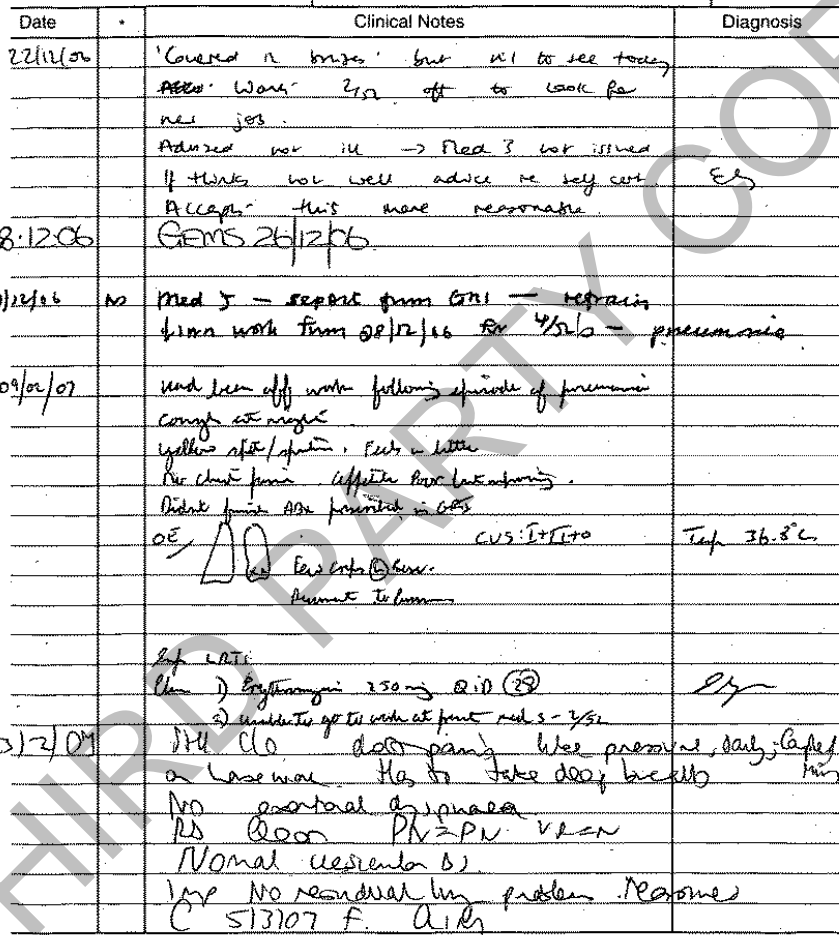 Date * Clinical Notes Diagnosis
22/12/06 'Covered in bruises' but nil to see today
Wants 2/52 off to look for
new job.
Advised not ill -> Med 3 not issued
If thinks not well advice re self cert.
Accepts this more reasonable.
8.12.06 GEMS 26/12/06
/12/06 Med 5 - report from GRI - refrain
from work from 28/12/06 for 4/52 - pneumonia
09/02/07 had been off work following episode of pneumonia
cough at night
yellow spit/sputum. Feels better
No chest pain. Appetite Poor but improving.
Didn't finish ABx prescribed in GRI
OE CVS: I+II+0 Temp 36.8°C
Few creps (L) base.
Imp LRTI
Plan 1) Erythromycin 250 mg QID (28)
2) unable to go to work at present med 3 - 2/52
3/2/07 Still C/O chest pains like pressure, daily, lasted
Has to take deep breaths
No exertional dyspnoea
RS Clear PN=PN VR=N
Normal vesicular BS
Imp No residual lung problem
C 5/3/07 F.
THIRD PARTY COP